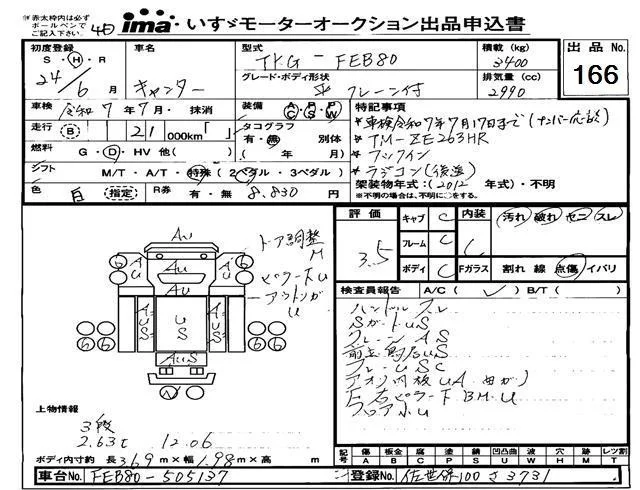 ※赤太枠内は必ず
ボールペンで
ご記入下さい。
ima いすゞモーターオークション出品申込書
初度登録
S・H・R
24/6月
車名
キャンター
型式
TKG-FEB80
グレード・ボディ形状
平 クレーン付
積載 (kg)
3400
排気量 (cc)
2990
出品 No.
166
車検 令和7年7月・抹消
装備 A/C P/S P/W
走行 (B) 21 000km「 」
タコグラフ
有・無 別体
( 年 月)
燃料 G・D・HV 他( )
シフト M/T・A/T・特殊(2ペダル・3ペダル)
色 白 指定 R券 有・無 8.830円
特記事項
*車検令和7年7月17日まで(ナンバー応談)
*TM-ZE263HR
*フックイン
*ラジコン(後送)
架装物年式:(2012年式)・不明
※不明の場合は、不明に○をする。
評価
3.5
キャブ C
フレーム C
ボディ C
内装 C
汚れ 破れ セニ スレ
Fガラス 割れ 線 点傷 イバリ
検査員報告 A/C( ✓ ) B/T( )
ハンドルスレ
SガードUS
クレーンAS
フレームSC
フロアホU
AU
AU
AUS
US
AUS
AUS
ドア調整
M
ピラー下U
アウトリガ
U
上物情報
3段
2.63t 12.06
ボディ内寸約 長3.69m×幅1.98m×高 m
記号 傷 板金 腐 塗 錆 凹 凹凸曲 波 穴 無 補 レツ割
A B C P S U U W H M T
車台No. FEB80-505137
登録No. 佐世保100さ3731